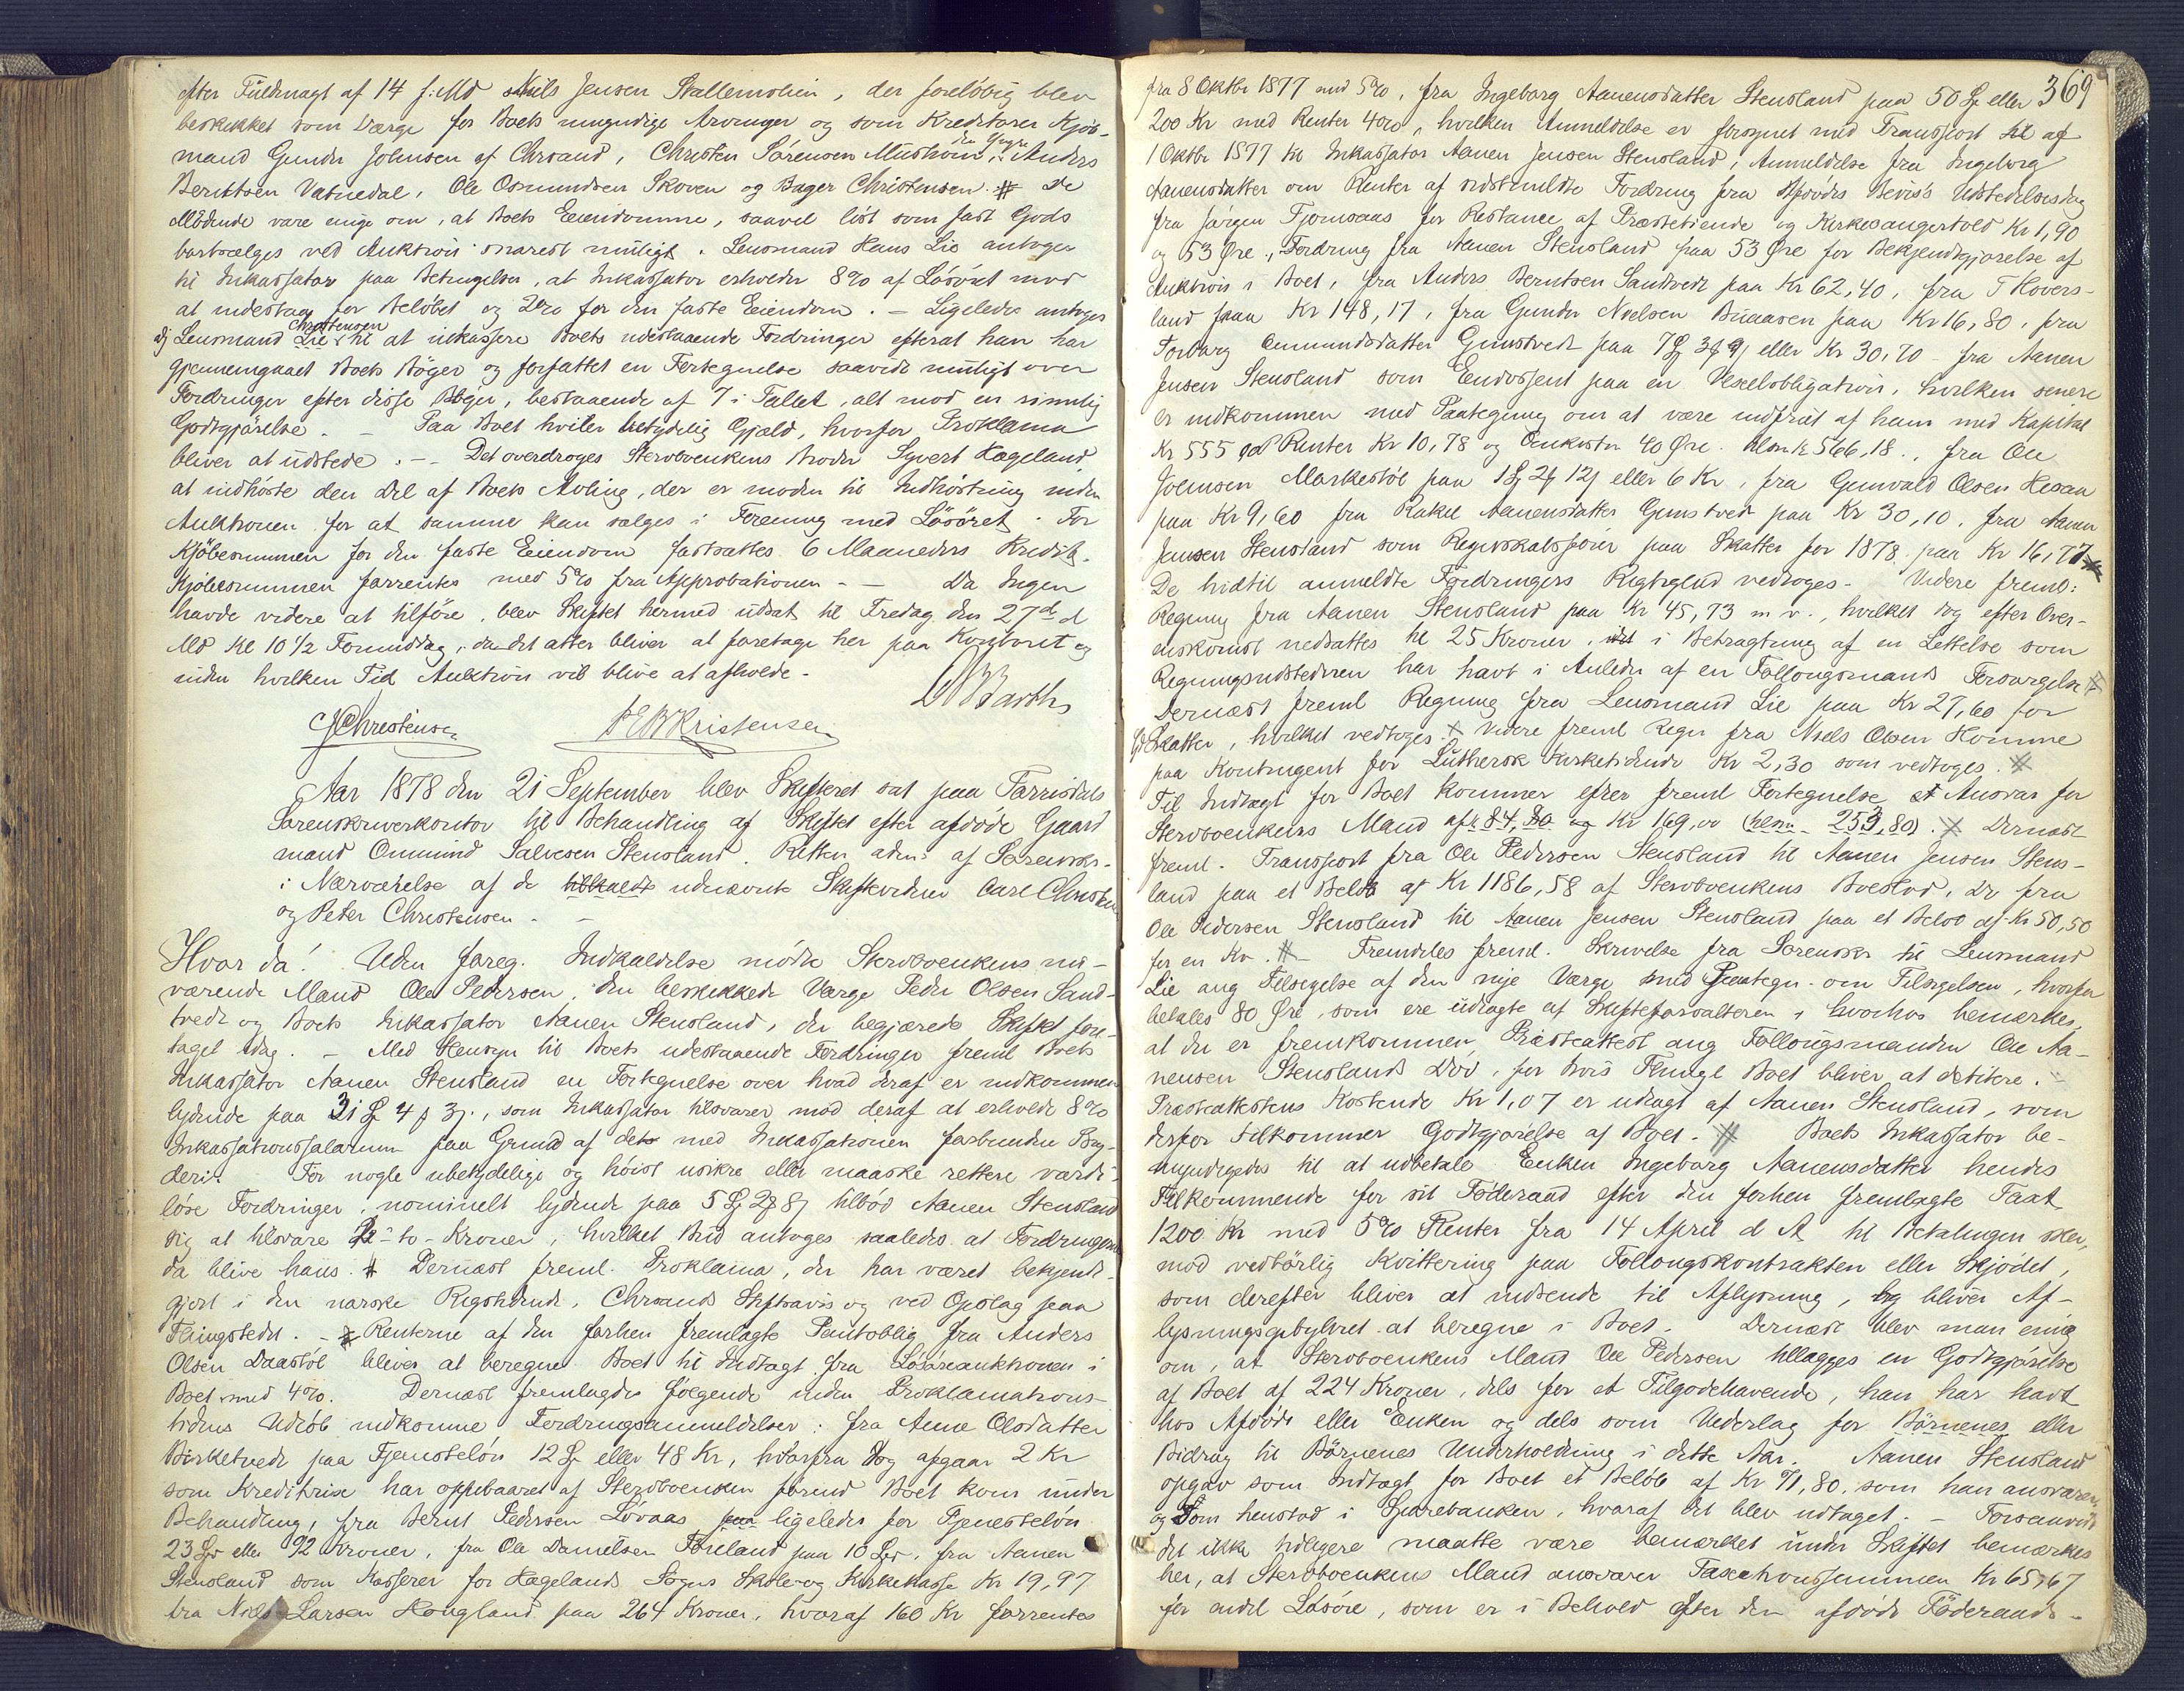 efter Fuldmagt af 14 f: Md Niels Jensen Stallemolien, der foreløbig blev
beskikket som Værge for Boets umyndige Arvinger og som Kreditorer Kjøb-
mand Gunder Johnsen af Chrsand, Christen Sørensen Mushom, Anders
Berntsen Vatnedal, Ole Osmundsen Skoven og Bager Christensen. # De
Mødende vare enige om, at Boets Eiendomme, saavel löst som fast Gods
bortsælges ved Auktion snarest muligt. Lensmand Hans Lie antoges
til Inkassator paa Betingelser, at Inkassator erholder 8% af Løsöret mod
at indestaa for Beløbet og 2% for den faste Eiendom. - Ligeledes antoges
Lensmand Lie Christensen til at inkassere Boets udestaaende Fordringer efterat han har
gjennemgaaet Boets Bøger og forfattet en Fortegnelse saavidt muligt over
Fordringer efter disse Bøger, bestaaende af 7 i Tallet, alt mod en rimelig
Godtgjørelse. - Paa Boet hviler betydelig Gjæld, hvorfor Proklama
bliver at udstede. - - Det overdroges Stervboenkens Broder Syvert Hægeland
at indhøste den Del af Boets Avling, der er moden til Indhøstning inden
Auktionen for at samme kan sælges i Forening med Løsöret. For
Kjöbesummen for den faste Eiendom fastsattes 6 Maaneders Kredit.
Kjöbesummen forrentes med 5% fra Approbationen - - Da Ingen
havde videre at tilføre, blev Skiftet hermed udsat til Fredag den 27de d
Md Kl 10 1/2 Formiddag, da det atter bliver at foretage her paa Kontoret og
inden hvilken Tid Auktion vil blive at afholde.
Barth
C Christensen P E B Kristensen
Aar 1878 den 21 September blev Skifteret sat paa Torrisdals
Sorenskriverkontor til Behandling af Skiftet efter afdøde Gaard
mand Ommund Salvesen Stensland. Retten adm: af Sorenskr.
i Nærværelse af de tilkaldte udnævnte Skiftevidner Carl Christensen
og Peter Christensen. -
Hvor da! Uden foreg. Indkaldelse mødte Stervboenkens nu-
værende Mand Ole Pedersen, den beskikkede Værge Peder Olsen Sand-
tvedt og Boets Inkassator Aanen Stensland, der begjærede Skiftet fore-
taget idag. - Med Hensyn til Boets udestaaende Fordringer freml Boets
Inkassator Aanen Stensland en Fortegnelse over hvad deraf er indkommen
lydende paa 31 Sp 4 ß 3 s., som Inkassator tilsvarer mod deraf at erholde 8%
Inkassationssalarium paa Grund af det med Inkassationen forbundne Bry-
deri. For nogle ubetydelige og høist usikre eller maaske rettere værdi-
løse Fordringer, nominelt lydende paa 5 Sp 2ß 8s tilbød Aanen Stensland
sig at tilsvare 2 - to - Kroner, hvilket Bud antoges saaledes at Fordringerne
da blive hans. # Dernæst freml. Proklama, der har været bekjendt-
gjort i den norske Rigstidende, Chrsands Stiftsavis og ved Opslag paa
Thingstedet. - # Renterne af den forhen fremlagte Pantoblig fra Anders
Olsen Daastöl bliver at beregne Boet til Indtægt fra Løsøreauktionen i
Boet med 4%. Dernæst fremlagdes følgende inden Proklamations-
tidens Udløb indkomne Fordringsanmeldelser: fra Anne Olsdatter
Birketvedt paa Tjenesteløn 12 Sp eller 48 Kr, hvorfra dog afgaar 2 Kr
som Kreditrix har oppebaaret af Stervboenken førend Boet kom under
Behandling, fra Bernt Pedersen Løvaas paa ligeledes for Tjenesteløn
23 Sp eller 92 Kroner, fra Ole Danielsen Föreland paa 10 Sp, fra Aanen
Stensland som Kasserer for Hægelands Sogns Skole- og Kirkekasse Kr 19,97
fra Niels Larsen Hougland paa 264 Kroner, hvoraf 160 Kr forrentes
369
fra 8 Oktbr 1877 med 5%, fra Ingeborg Aanensdatter Stensland paa 50 Sp eller
200 Kr med Renter 4%, hvilken Anmeldelse er forsynet med Transport til af
1 Oktbr 1877 til Inkassator Aanen Jensen Stensland, Anmeldelse fra Ingeborg
Aanensdatter om Renter af sidstmeldte Fordring fra Afdødes Bevis's Udstedelsesdag
fra Jørgen Tjomsaas for Restance af Præstetiende og Kirkesangertold Kr 1,90
og 53 Øre, Fordring fra Aanen Stensland paa 53 Øre for Bekjendtgjørelse af
Auktion i Boet, fra Anders Berntsen Sandtvedt paa Kr 62,40, fra T Hovers-
land paa Kr 148,17, fra Gunder Nielsen Buaasen paa Kr 16,80, fra
Torborg Ommundsdatter Gunstvedt paa 7 Sp 3ß 9s eller Kr 30,70 - fra Aanen
Jensen Stensland som Endossent paa en Vexelobligation, hvilken senere
er indkommen med Paategning om at være indfriet af ham med Kapital
Kr 555 Renter Kr 10,78 og Omkostn 40 Øre tilsm Kr 566,18., fra Ole
Johnsen Markestöl paa 1 Sp 2ß 12s eller 6 Kr, fra Gunvald Olsen Hesaa
paa Kr 9,60 fra Rakel Aanensdatter Gunstvedt paa Kr 30,10, fra Aanen
Jensen Stensland som Regnskabsfører paa Skatter for 1878 paa Kr 16,77 #
De hidtil anmeldte Fordringers Rigtighed vedtoges - Videre freml:
Regning fra Aanen Stensland paa Kr 45,73 m. v., hvilket dog efter Over-
enskomst nedsattes til 25 Kroner, i Betragtning af en Lettelse som
Regningsudstederen har havt i Anledn af en Follougsmands Forsørgelse #
Dernæst freml Regning fra Lensmand Lie paa Kr 27,60 for
Skatter, hvilket vedtoges # Videre freml Regn fra Niels Olsen Homme
paa Kontingent for Luthersk Kirketidende Kr 2,30 som vedtoges. #
Til Indtægt for Boet kommer efter freml Fortegnelse et Ansvar for
Stervboenkens Mand af k 84,80 og Kr 169,00 (tilsm - 253,80). # Dernæst
freml. Transport fra Ole Pedersen Stensland til Aanen Jensen Stens-
land paa et Beløb af Kr 1186,58 af Stervboenkens Boeslod, Do fra
Ole Pedersen Stensland til Aanen Jensen Stensland paa et Beløb af Kr 50,50
for en Ko. # - Fremdeles freml. Skrivelse fra Sorenskr til Lensmand
Lie ang Tilsigelse af den nye Værge med Paategn. om Tilsigelsen, hvorfor
betales 80 Øre, som ere udlagte af Skifteforvalteren, hvorhos bemærkes,
at der er fremkommen Præsteattest ang Follougsmanden Ole Aa-
nensen Stenslands Död, for hvis Thingl Boet bliver at debitere.
Præsteattestens Kostende Kr 1,07 er udlagt af Aanen Stensland, som
derfor tilkommer Godtgjørelse af Boet. # Boets Inkassator be-
myndigedes til at udbetale Enken Ingeborg Aanensdatter hendes
Tilkommende for sit Föderaad efter den forhen fremlagte Taxt
1200 Kr med 5% Renter fra 14 April d A til Betalingen skeer,
mod vedbørlig Kvittering paa Follougskontrakten eller Skjødet,
som derefter bliver at indsende til Aflysning, og bliver Af-
lysningsgebyhret at beregne i Boet. Dernæst blev man enig
om, at Stervboenkens Mand Ole Pedersen tillægges en Godtgjørelse
af Boet af 224 Kroner, dels for et Tilgodehavende, han har havt
hos Afdøde eller Enken og dels som Vederlag for Børnenes eller
Bidrag til Børnenes Underholdning i dette Aar. Aanen Stensland
opgav som Indtægt for Boet et Beløb af Kr 71,80, som han ansvarer
og som henstod i Sparebanken, hvoraf det blev udtaget. - Forsaavidt
det ikke tidligere maatte være bemærket under Skiftet bemærkes
her, at Stervboenkens Mand ansvarer Taxationssummen Kr 65,67
for endel Løsøre, som er i Behold efter den afdøde Föderaads-